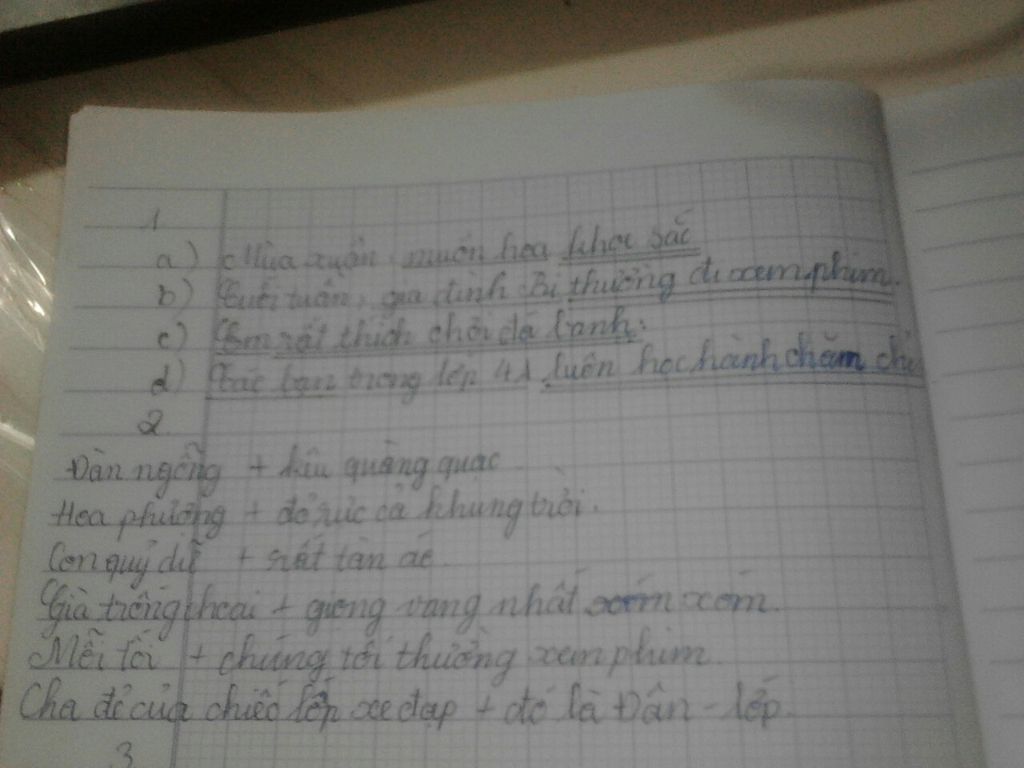 1
a) Mùa xuân, muôn hoa khoe sắc
b) Cuối tuần, gia đình Bi thường đi xem phim.
c) Em rất thích chơi đá banh.
d) Các bạn trong lớp 4A luôn học hành chăm chỉ
2
Đàn ngỗng + kêu quàng quạc
Hoa phượng + đỏ rực cả khung trời.
Con quỷ dữ + rất tàn ác.
Gà trống choai + giọng vang nhất xóm xóm.
Mỗi tối + chúng tôi thường xem phim.
Cha đẻ của chiếc lốp xe đạp + đó là Đân-lốp.
3